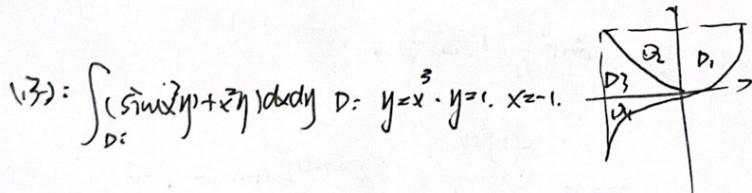 例: ∫_{D:} (sin(x³y)+x²y)dxdy D: y=x³. y=1. x=-1.
D₂ D₁
D3
D4